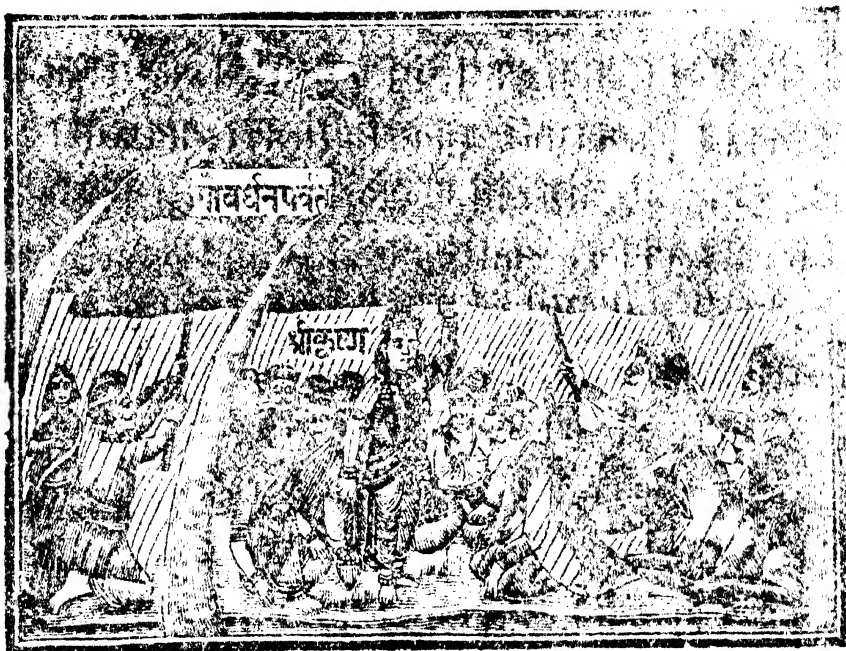 गोवर्धनपर्वत
श्रीकृष्ण